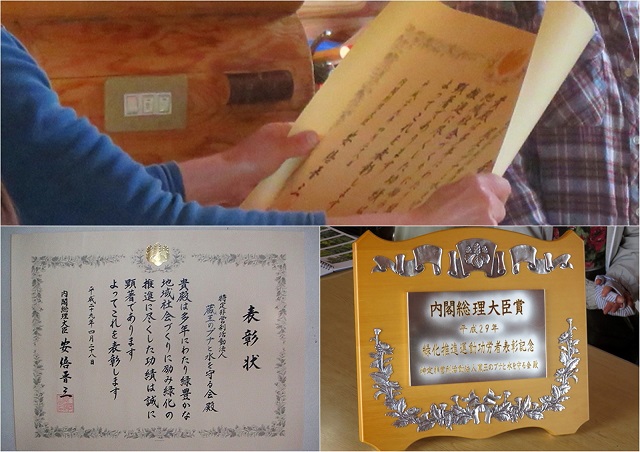 表彰状
特定非営利活動法人
蔵王のブナと水を守る会殿
貴殿は多年にわたり緑豊かな
地域社会づくりに励み緑化の
推進に尽くした功績は誠に
顕著であります
よってこれを表彰します
平成二十九年四月二十八日
内閣総理大臣 安倍晋三
内閣総理大臣賞
平成29年
緑化推進運動功労者表彰記念
特定非営利活動法人蔵王のブナと水を守る会殿